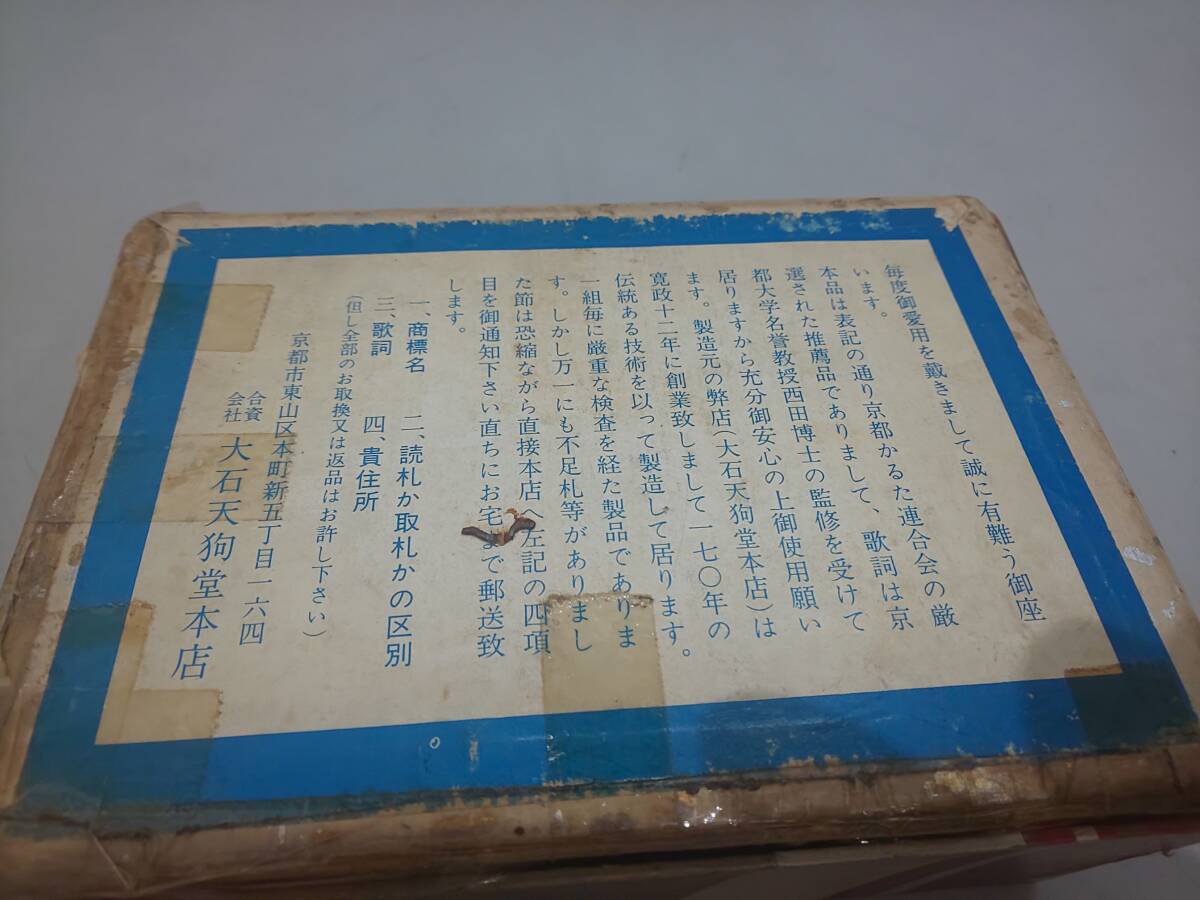 毎度御愛用を戴きまして誠に有難う御座
います。
本品は表記の通り京都かるた連合会の厳
選された推薦品でありまして、歌詞は京
都大学名誉教授西田博士の監修を受けて
居りますから充分御安心の上御使用願い
ます。製造元の弊店(大石天狗堂本店)は
寛政十二年に創業致しまして一七〇年の
伝統ある技術を以って製造して居ります。
一組毎に厳重な検査を経た製品でありま
す。しかし万一にも不足札等がありまし
た節は恐縮ながら直接本店へ左記の四項
目を御通知下さい直ちにお宅まで郵送致
します。
一、商標名 二、読札か取札かの区別
三、歌詞 四、貴住所
(但し全部のお取換又は返品はお許し下さい)
京都市東山区本町新五丁目一六四
合資会社 大石天狗堂本店